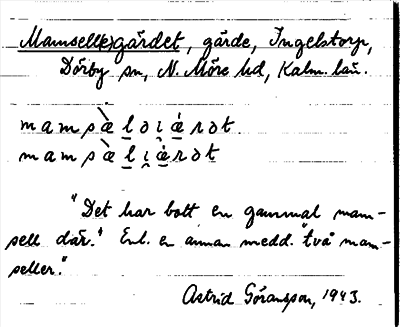 Mamsell(e)gärdet, gärde, Ingelstorp,
Dörby sn, N. Möre hd, Kalm. län.
mamsæ̀ləɩǽrət
mamsæ̀lɩǽrət
"Det har bott en gammal mam-
sell där." Enl. en annan medd. "två mam-
seller."
Astrid Göransson, 1943.